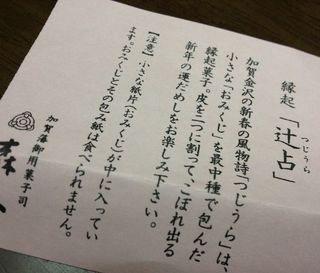 縁起「辻占」
つじうら
加賀金沢の新春の風物詩「つじうら」は、
小さな「おみくじ」を最中種で包んだ
縁起菓子。皮を二つに割って、こぼれ出る
新年の運だめしをお楽しみ下さい。
【注意】小さな紙片(おみくじ)が中に入ってい
ます。おみくじとその包み紙は食べられません。
加賀藩御用菓子司
森